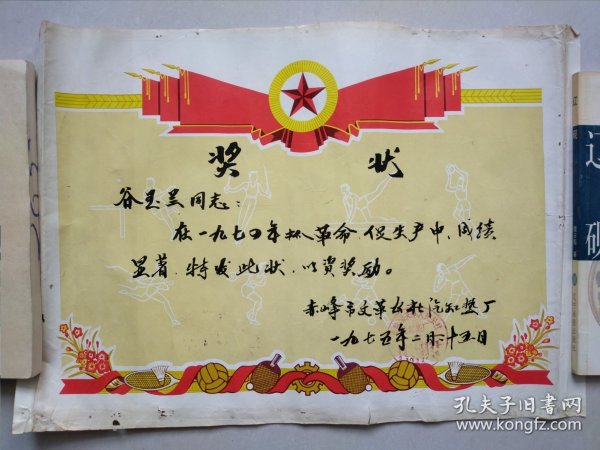 奖状
谷玉兰同志:
在一九七四年抓革命、促生产中,成绩
显著,特发此状,以资奖励。
赤峰市文革公社汽知垫厂
一九七五年二月二十五日
孔夫子旧书网
www.kongfz.com